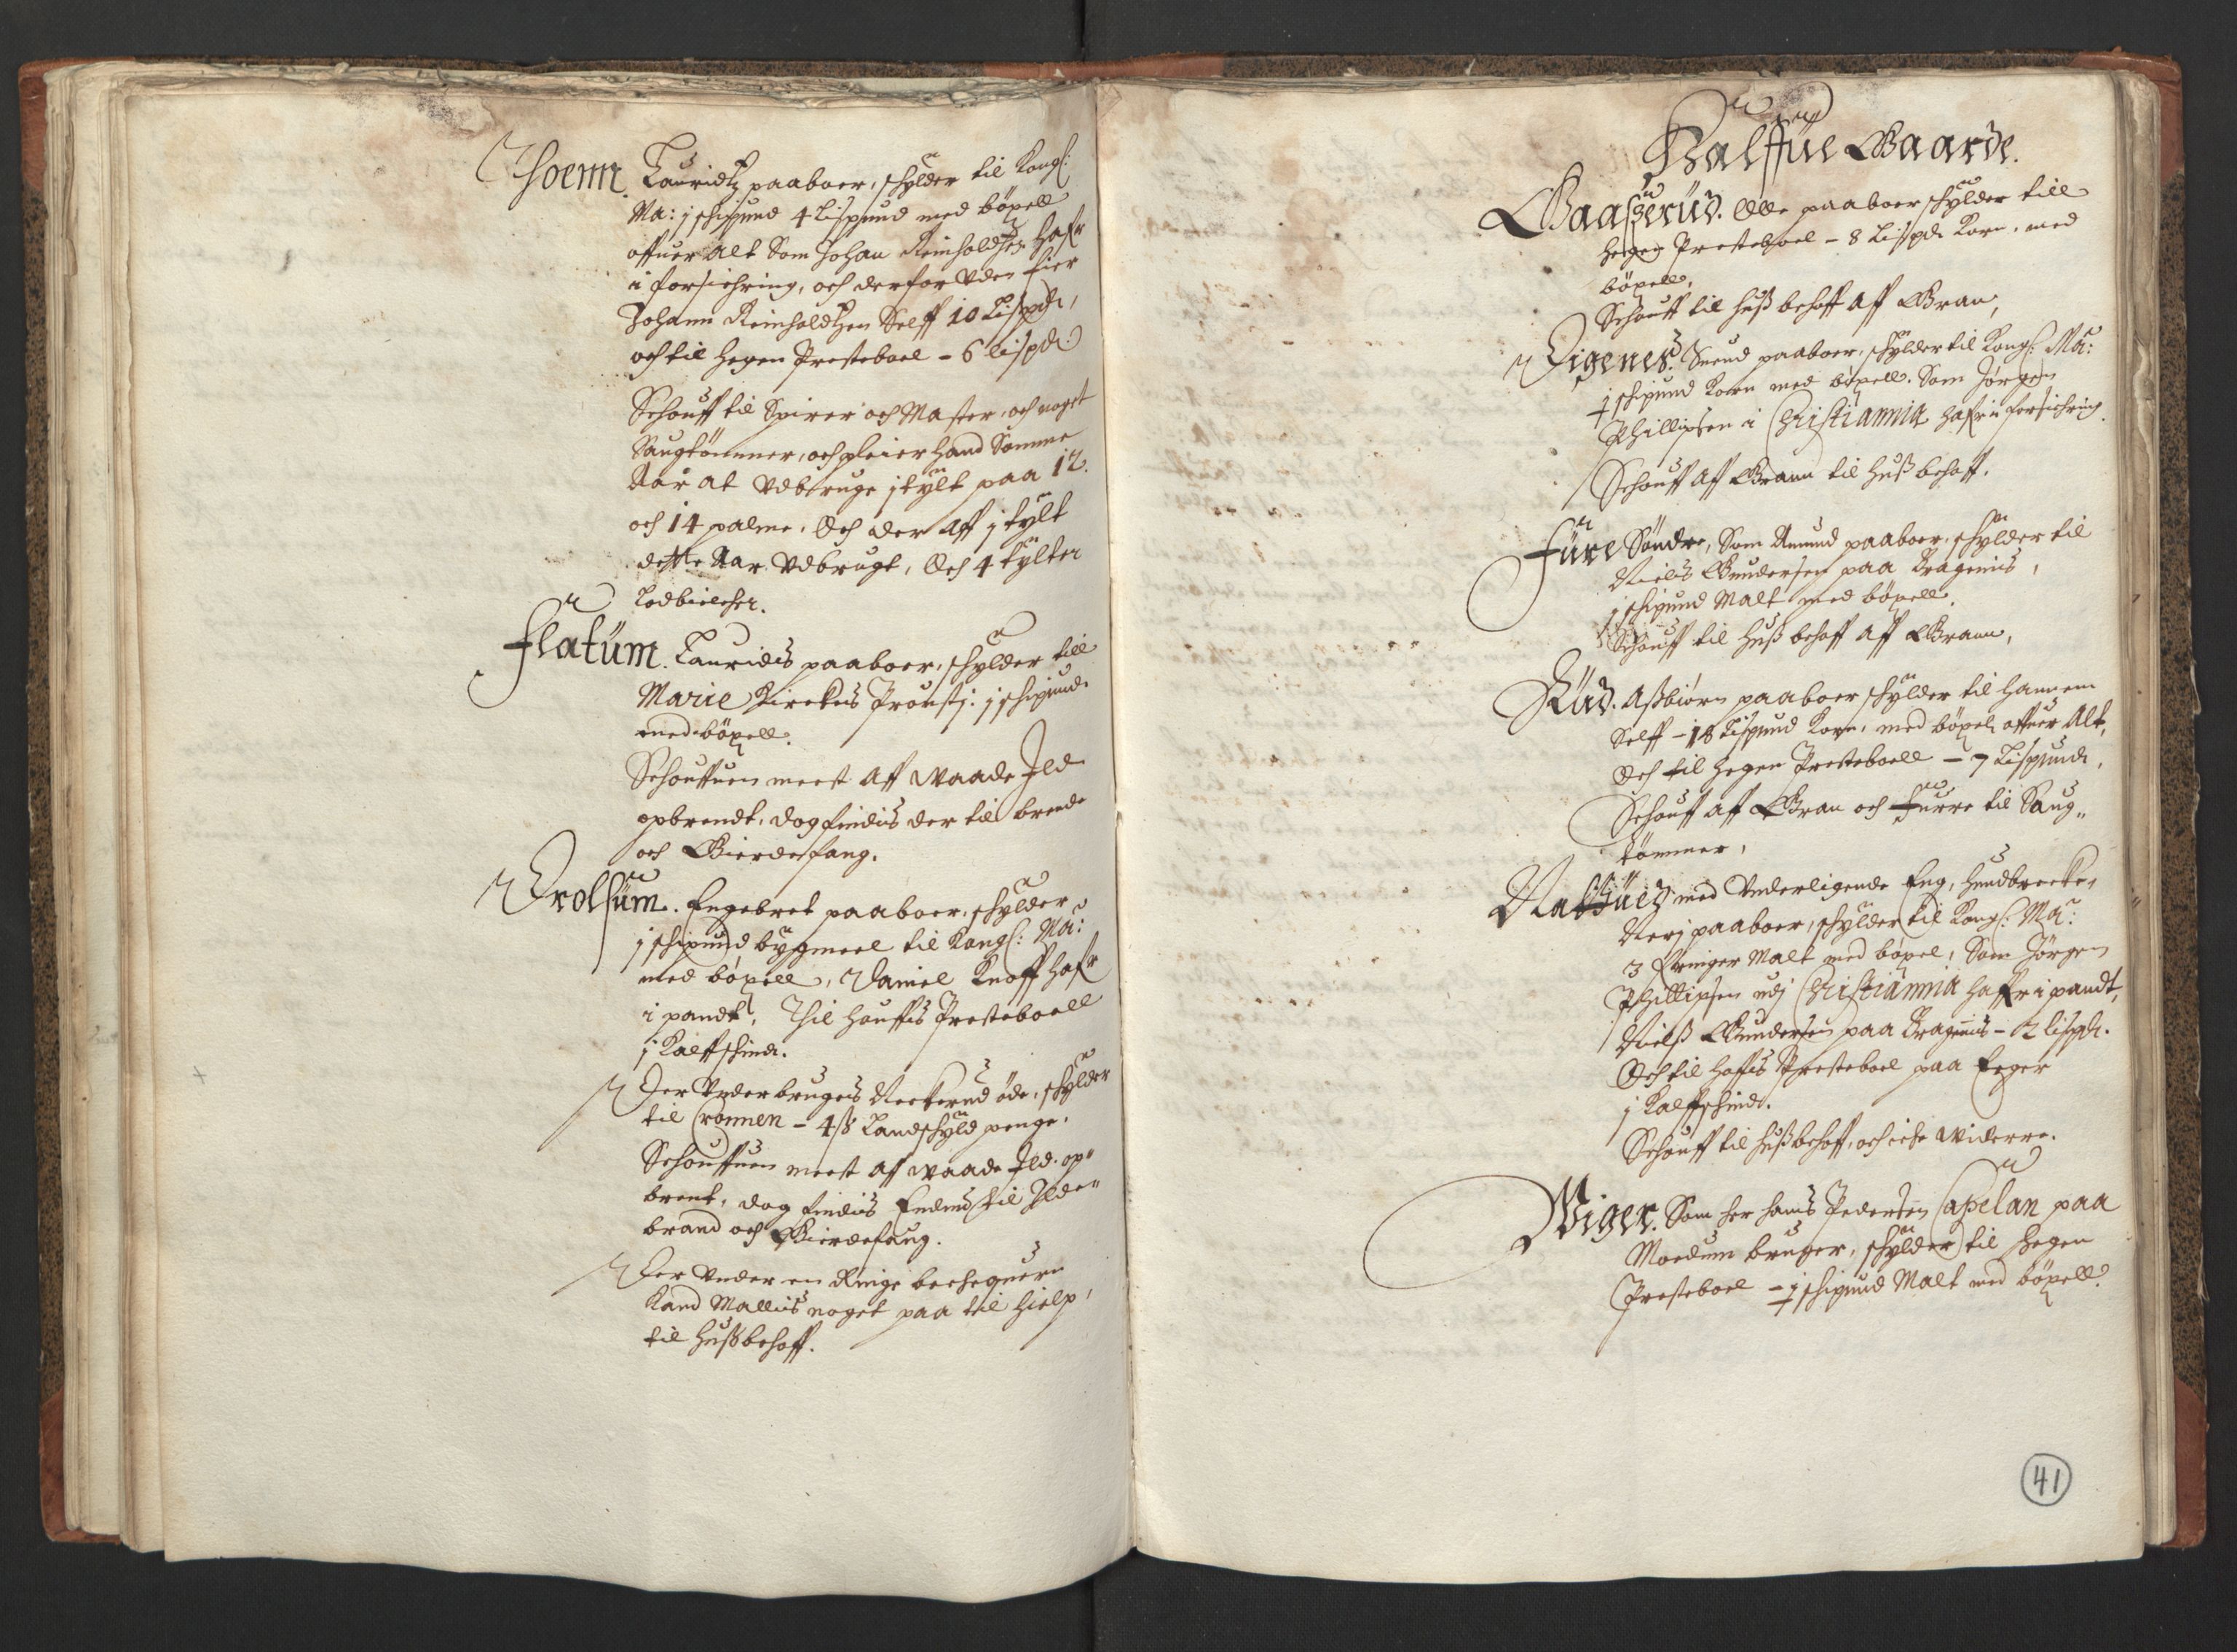 Thoenn Lauridtz paaboer, schylder til Kongl:
Ma: j schipund 4 Lispund med böxell
offuer alt Som Johan Reinholdtzen hafr
i forsichring, och derforuden eier
Johann Reinholdtzen Self 10 Lispd,
och til Hegen Presteboel - 6 lispd:
Schouff til Spirer och Master, och noget
Saugtömmer, och pleier hand Somme
Aar at vdbruge j tylt paa 12
och 14 palme, Och der aff j tylt
dette Aar vdbrugt, Och 4 tylter
Lodbielcher.
Flatüm. Lauridis paaboer, schylder till
Marie Kirckes Proustj: j schipund
med böxell.
Schouffuen meest aff waade Jld
opbrendt, dog findis der til brende
och Gierdesfang.
Trolsüm. Engebret paaboer, schylder
j schipund bygmeel til Kongl: Ma:
med böxell, Daniel Knoff hafr
i pandt, Thil Houffs Presteboell
j Kalfschind.
Der Vnderbruges Neckerud öde, schylder
til Cronnen - 4 ß Landschyld penge.
Schouffuen meest aff waade Jld. op"
brent, dog findis Endnu til Jlde"
brand och Gierdefang.
Der Vnder en Ringe beckequern
Kand Mallis noget paa til hielp,
til Hußbehoff.
Halffue Gaarde.
Gaaßerüd. Olle paaboer schylder till
Hegen Presteboel - 8 Lispd Korn, med
böxell,
Schouff til huß behoff aff Gran,
Vigenes. Suend paaboer, schylder til Kongl: Ma:
½ schipund Korn med böxell. Som Jörgen
Phillipsen i Christiannia hafr i forsichring.
Schouff aff Grann til huß behoff.
Füre Söndre, Som Amund paaboer, schylder til
Nielis Gundersen paa Bragenis,
j schipund Malt med böxell.
Schouff til huß behoff aff Grann,
Rüd. Aßbiörn paaboer schylder til hannem
Self - 18 Lispund Korn, med böxel offuer Alt,
Och til Hegen Presteboell - 7 Lispund,
Schouff aff Gran och Furre til Saug"
tömmer,
med Vnderligende Eng, Hundbrecke,
Nerj paaboer, schylder til Kongl: Ma:
3 Malt med böxel, Som Jörgen
Phillipsen udj Christiannia haffr i pandt,
Nielß Gundersen paa Bragenis - 2 lispd.
Och til Hoffs Presteboel paa Eger
j Kalfschind.
Schouff til hußbehoff, och icke widerre.
Wiger. Som her Hans Pedersen Capelan paa
Moedum bruger, schylder til Hegen
Presteboel - ½ schipund Malt med böxell.
41